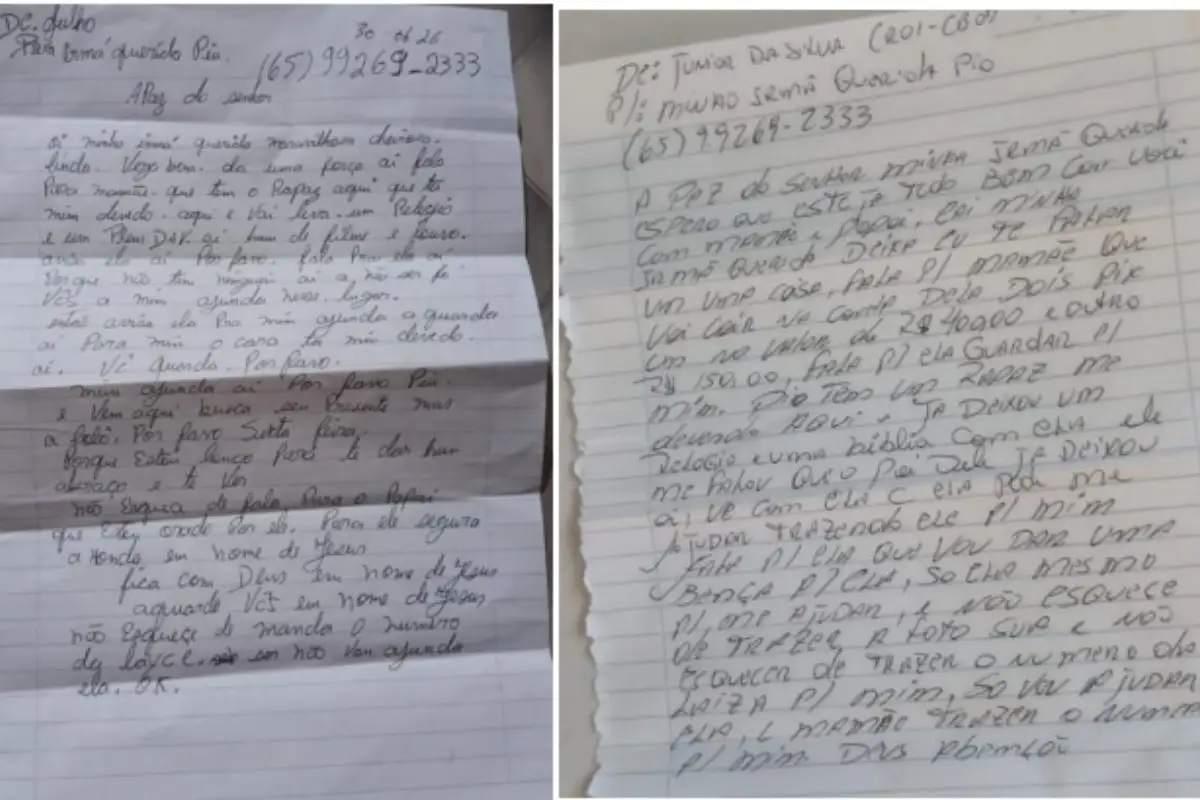 De. Julho
30 06 26
Para irmã querido Piu.
(65) 99269-2333
A Paz do senhor
oi minha irmã querido maravilhosa cheirosa.
linda. Vejo bem. da uma força ai fala
Para mamãe que tem o Rapaz aqui que ta
mim devedo. aqui e Vai leva. um Relogio
e um Plen DAV. ai de filme e
ela ai Por favo. fala Pra ela ai
Porque não tem ninguem ai a não ser
Vcs a mim ajunda nesse lugar.
então ela Pra mim ajunda a guarda
ai Para mim o cara ta mim devedo.
ai. Vc Guarda. Por favo.
mim ajunda ai Por favo Piu.
e Vem aqui busca seu Presente mas
a foto. Por favo Sexta feira.
Porque Estou louco Para te da hum
abraço e te Ver
não Esqueça de fala Para o Papai
que Estou orado Por ele. Para ele segura
a Honda em nome de Jesus
fica com Deus em nome de Jesus
aguardo Vcs em nome de Jesus
não Esqueçe de manda o numero
da layce. eu não Vou ajunda
ela. OK.
De: JUNIOR DA SILVA (201-
P/: MINHA IRMÃ Querida Pio
(65) 99269-2333
A PAZ do SenHOR MINHA IRMÃ Querida
espero que esteja Tudo Bom Com Você
Com MAMÃE e PAPAI, MINHA
IRMÃ Querida Deixa eu Te FALAR
UM UMA COISA, FALA P/ MAMÃE Que
Vai Cair NA CONTA Dela Dois Pix
UM NO VALOR de R$ 400,00 e OUTRO
R$ 150,00, FALA P/ ela GUARDAR P/
MIM. Pio Tem UM RAPAZ me
devendo AQUI e JÁ Deixou UM
Relogio e uma BIBLIA Com ela ele
me FALOU Que o Pai Dele JÁ Deixou
ai, Ve Com ela C ela Pode me
AJUDAR TRAZENDO ele P/ MIM
FALA P/ ela Que VOU DAR UMA
BENÇA P/ ela, SO ela MESMO
P/ me AJUDAR, e NÃO esquece
de TRAZER A FOTO SUA e NÃO
esquecer de TRAZER O NUMERO da
LAIZA P/ MIM, SO VOU AJUDAR
ela, C MAMÃE TRAZER O NUMERO
P/ MIM. Deus